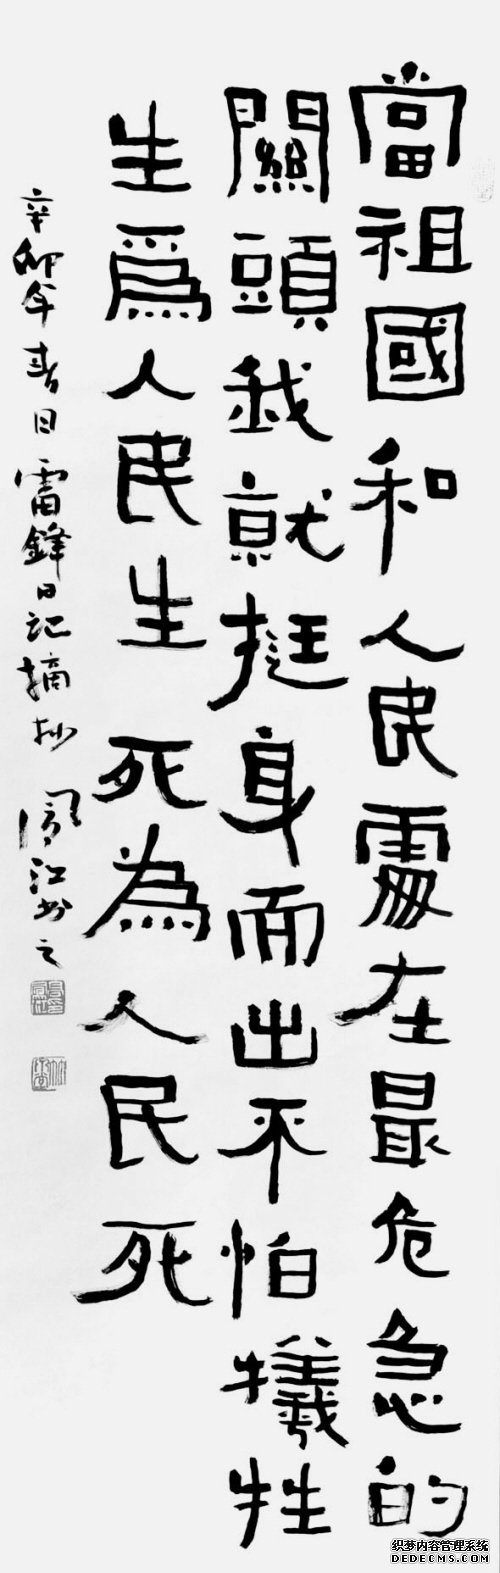 當祖國和人民處在最危急的
關頭我就挺身而出不怕犧牲
生爲人民生死為人民死
辛卯年春日雷鋒日記摘抄 江书之
织梦内容管理系统
DEDECMS.COM